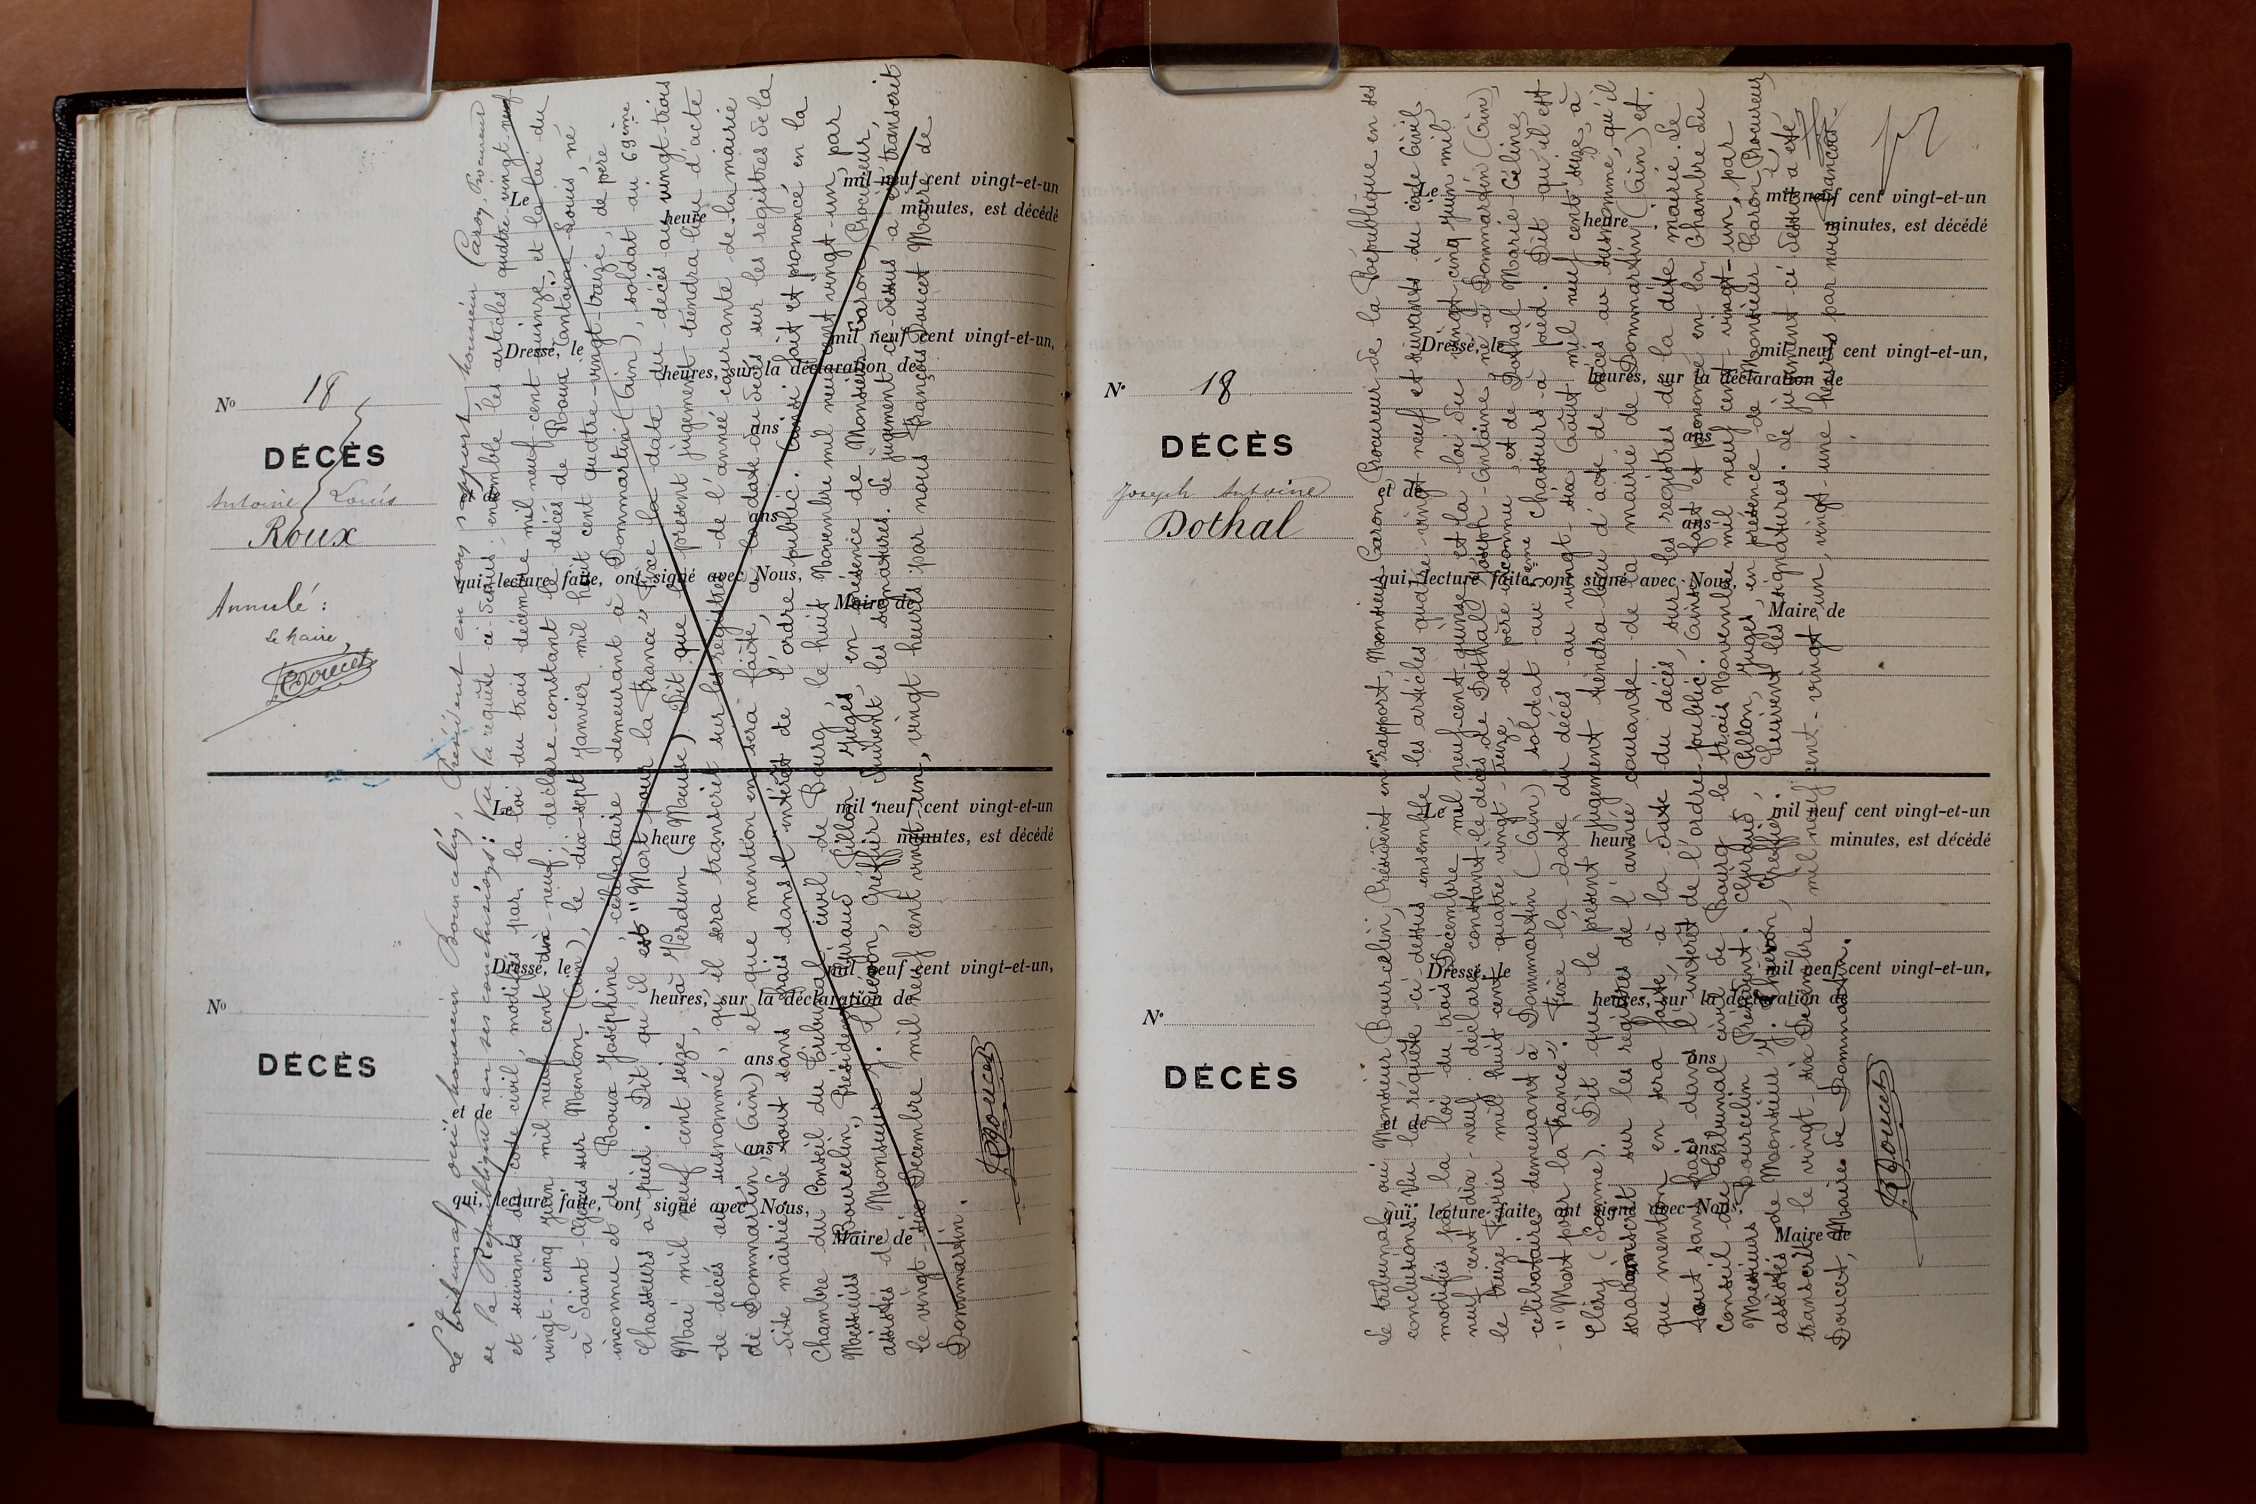 Nº 18
DÉCÈS
Antoine Louis
Roux
Annulé :
Le Maire,
Doucet
Le
mil neuf cent vingt-et-un
heure
minutes, est décédé
Dressé, le
mil neuf cent vingt-et-un,
heures, sur la déclaration de
ans
et de
ans
qui, lecture faite, ont signé avec Nous,
Maire de
Nº
DÉCÈS
Le
mil neuf cent vingt-et-un
heure
minutes, est décédé
Dressé, le
mil neuf cent vingt-et-un,
heures, sur la déclaration de
ans
et de
ans
qui, lecture faite, ont signé avec Nous,
Maire de
Le tribunal, ouï monsieur Bourcelin, Président en son rapport, monsieur Caron, Procureur
de la République en ses conclusions : Vu la requête ci-dessus ; ensemble les articles quatre-vingt-neuf
et suivants du code civil, modifiés par la loi du trois décembre mil neuf cent quinze et la loi du
vingt-cinq juin mil neuf cent dix-neuf. déclare constant le décès de Roux Antoine Louis, né
à Saint Cyr sur Menthon (Ain), le dix-sept Janvier mil huit cent quatre-vingt-treize, de père
inconnu et de Roux Joséphine, célibataire demeurant à Dommartin (Ain), soldat au 69ème
Chasseurs à pied. Dit qu'il est "Mort pour la France" Fixe la date du décès au vingt-trois
Mai mil neuf cent seize, à Verdun (Meuse) Dit que le présent jugement tiendra lieu d'acte
de décès au susnommé, qu'il sera transcrit sur les registres de l'année courante de la mairie
de Dommartin (Ain) et que mention en sera faite, à la date du décès sur les registres de la
dite mairie. Le tout sans frais dans l'intérêt de l'ordre public. Ainsi fait et prononcé en la
Chambre du Conseil du tribunal civil de Bourg, le huit Novembre mil neuf cent vingt-un, par
Messieurs Bourcelin, Président, Guiraud Pillon Juges, en présence de Monsieur Caron, Procureur,
assistés de Monsieur J. Thévenon, Greffier. Suivent les signatures. Le jugement ci-dessus a été transcrit
le vingt-six Décembre mil neuf cent vingt-un, vingt heures par nous François Doucet Maire de
Dommartin.
Doucet
Nº 18
DÉCÈS
Joseph Antoine
Dothal
Le
mil neuf cent vingt-et-un
heure
minutes, est décédé
Dressé, le
mil neuf cent vingt-et-un,
heures, sur la déclaration de
ans
et de
ans
qui, lecture faite, ont signé avec Nous,
Maire de
Nº
DÉCÈS
Le
mil neuf cent vingt-et-un
heure
minutes, est décédé
Dressé, le
mil neuf cent vingt-et-un,
heures, sur la déclaration de
ans
et de
ans
qui, lecture faite, ont signé avec Nous,
Maire de
Le tribunal, ouï Monsieur Bourcelin, Président en son rapport, Monsieur Caron, Procureur de la République en ses
conclusions. Vu la requête ci-dessus ensemble les articles quatre-vingt neuf et suivants du code Civil,
modifiés par la loi du trois Décembre mil neuf cent quinze et la loi du vingt cinq juin mil
neuf cent dix-neuf. déclare constant le décès de Dothal Joseph-Antoine, né à Dommartin (Ain),
le treize Février mil huit cent quatre vingt-treize, de père inconnu, et de Dothal Marie Céline,
célibataire demeurant à Dommartin (Ain) soldat au Chasseurs à pied. Dit qu'il est
"Mort pour la France". Fixe la date du décès au vingt six Août mil neuf cent seize, à
Cléry (Somme). Dit que le présent jugement tiendra lieu d'acte de décès au susnommé, qu'il
sera transcrit sur les registres de l'année courante de la mairie de Dommartin (Ain) et
que mention en sera faite, à la date du décès, sur les registres de la dite mairie. Le
tout sans frais dans l'intérêt de l'ordre public. Ainsi fait et prononcé en la Chambre du
Conseil du Tribunal civil de Bourg le trois Novembre mil neuf cent-vingt-un, par
Messieurs Bourcelin Président. Guiraud, Pillon, Juges, en présence de Monsieur Caron, Procureur,
assistés de Monsieur J. Thévenon, Greffier. Suivent les signatures. Le jugement ci dessus a été
transcrit le vingt-six Décembre mil neuf cent-vingt-un, vingt-une heures par nous François
Doucet, Maire de Dommartin.
Doucet